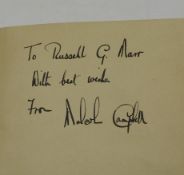 To Russell G. Marr
With best wishes
From Malcolm Campbell